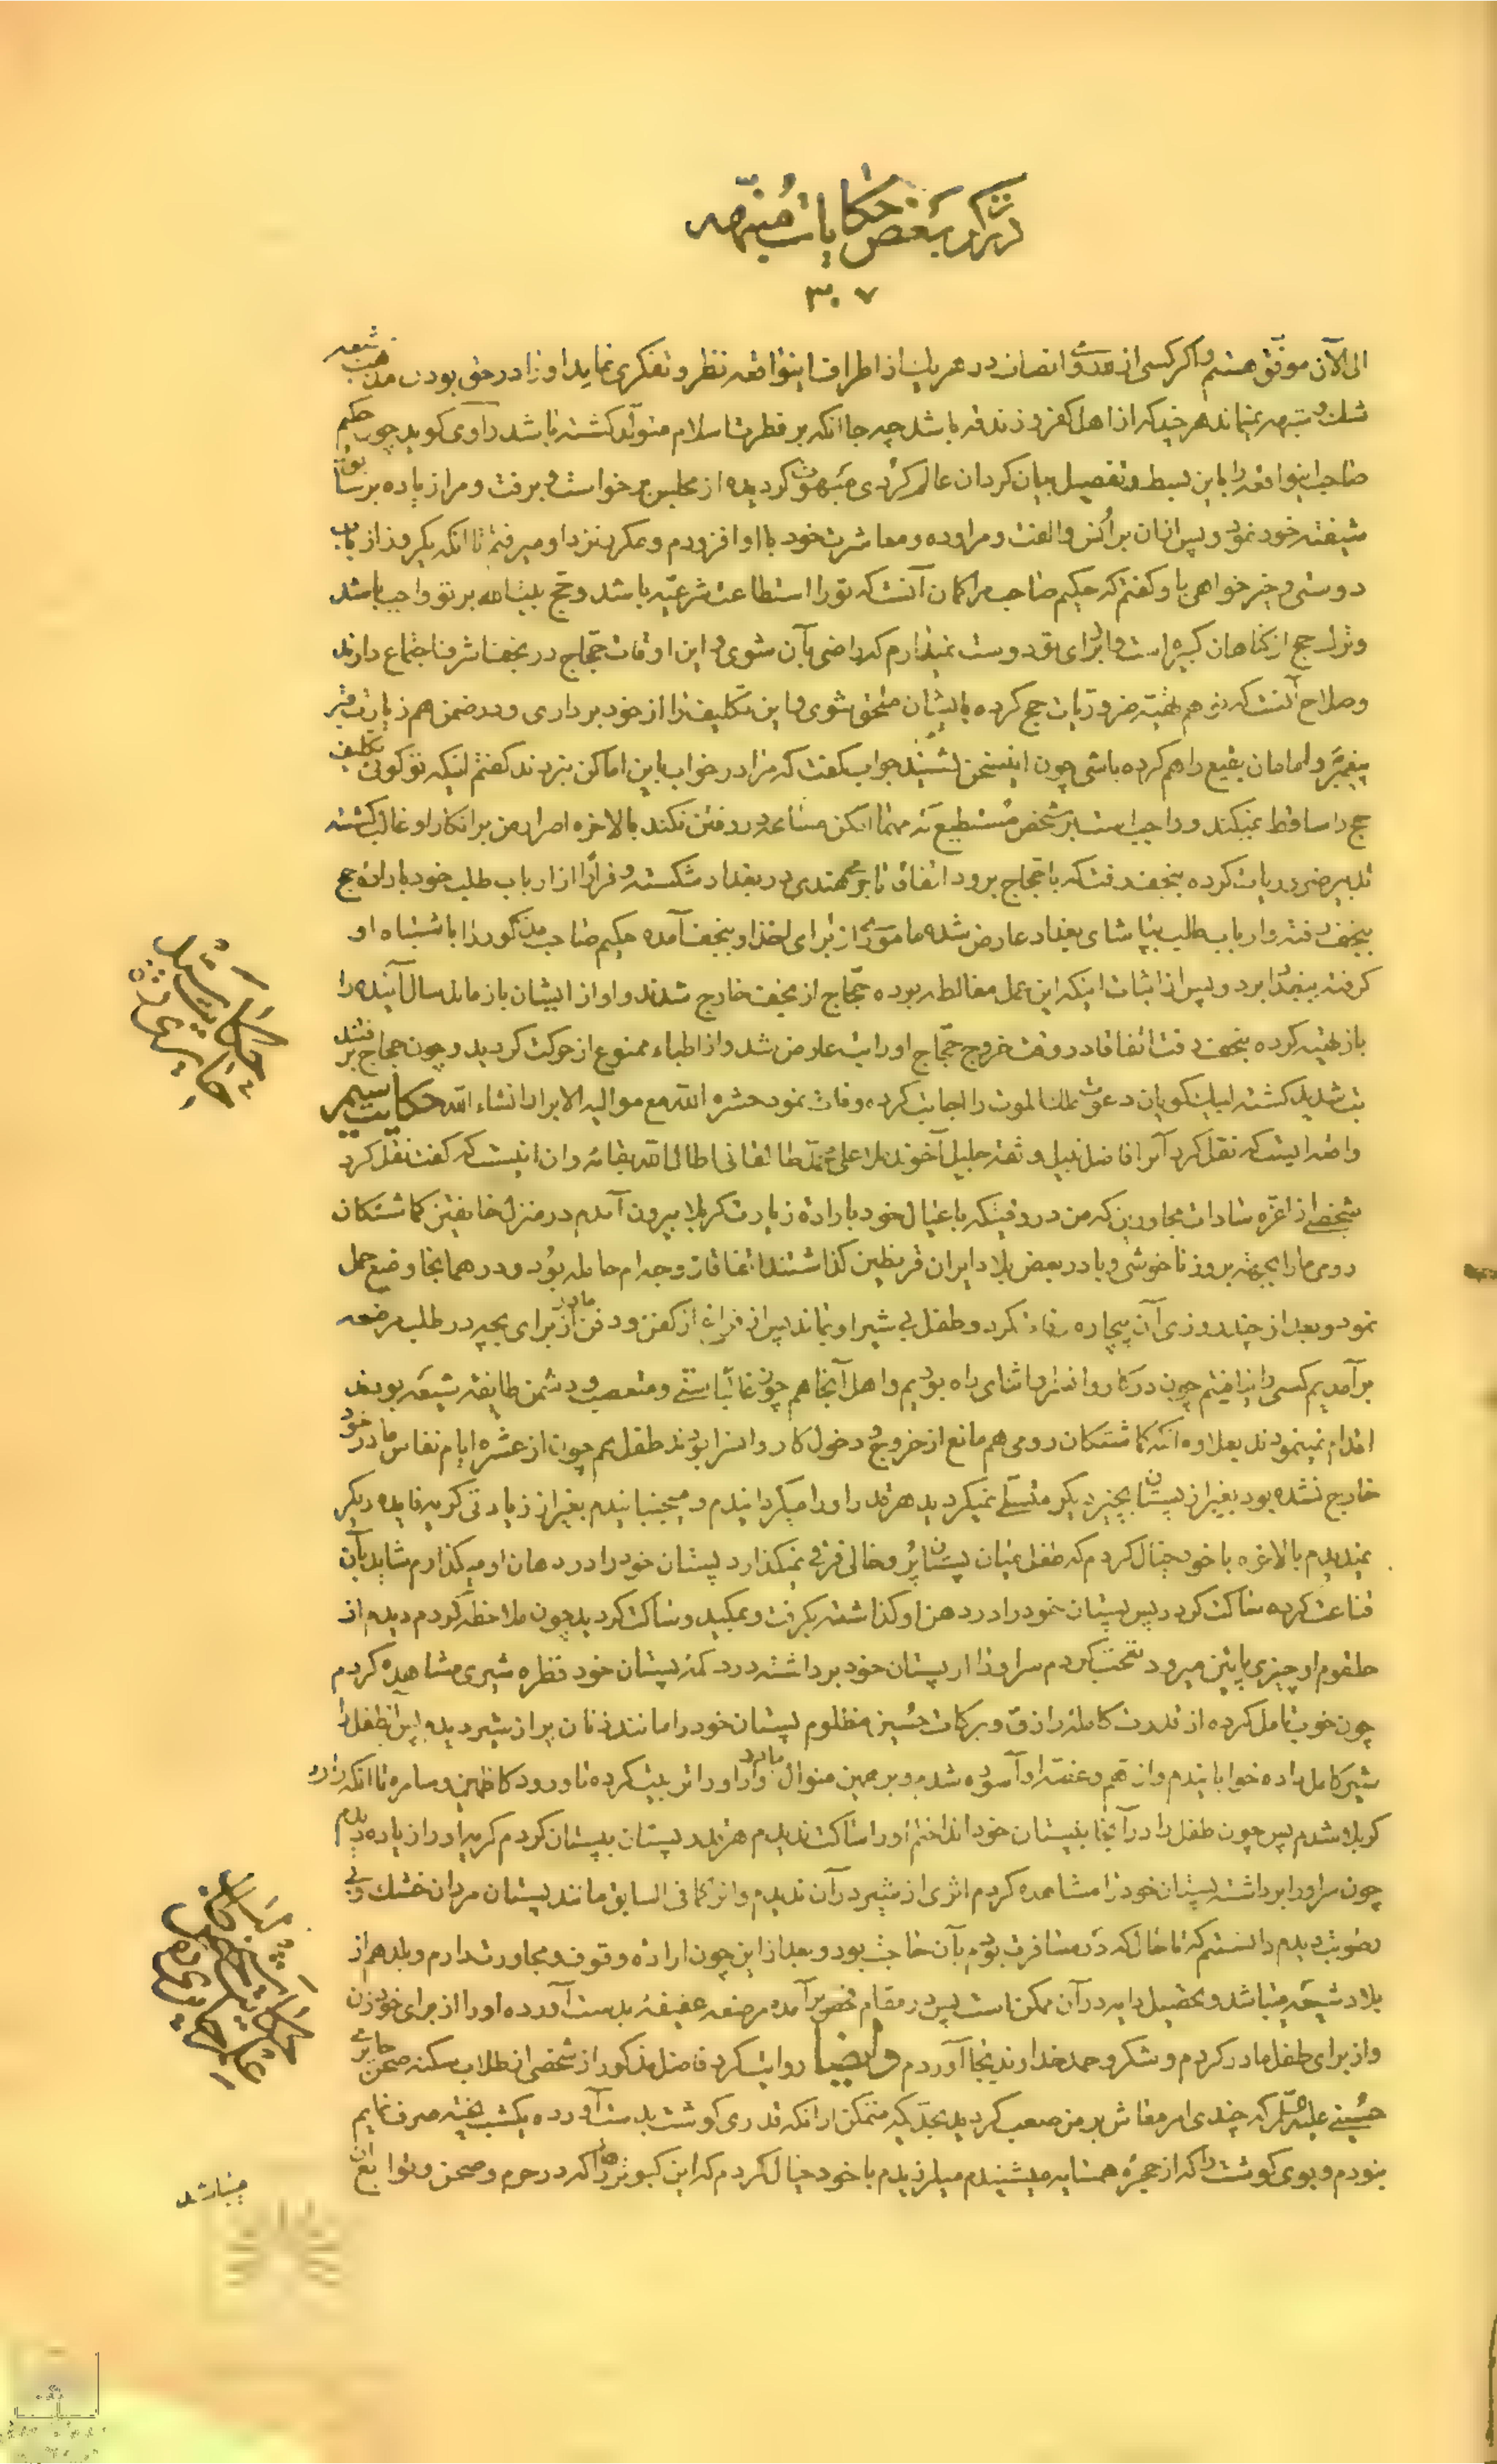 در ذکر بعض حکایات منبّهه
۳۰۷
الی الآن موفّق هستم و اگر کسی از مدّت و انصاف در هر یک از اطراف اینواقعه نظر و تفکری نماید او را در حق بودن مذهب شیعه
شک و شبهه نمیماند هر چند که از اهل کفر و زندقه باشد چه جا آنکه بر فطرت اسلام متولّد گشته باشد راوی گوید چون حکیم
صاحب اینواقعه را باین بسط و تفصیل بیان کرد ان عالم کُردی مبهوت گردیده از مجلس برخواست و برفت و مرا زیاده بر سابق
شیفته خود نمود و پس از ان بر اُنس و الفت و مراوده و معاشرت خود با او افزودم و مکرر نزد او میرفتم تا انکه یکروز از باب
دوستی و خیر خواهی باو گفتم که حکیم صاحب مرا گمان آنست که تو را استطاعت شرعیّه باشد و حج بیت الله بر تو واجب باشد
و ترک حج از گناهان کبیره است و برای تو دوست نمیدارم که راضی بآن شوی و این اوقات حجّاج در نجف اشرف اجتماع دارند
و صلاح آنست که تو هم تهیّه ضروریات حج کرده بایشان ملحق شوی و این تکلیف را از خود برداری و در ضمن هم زیارت قبر
پیغمبر و امامان بقیع را هم کرده باشی چون اینسخن بشنید جواب گفت که مرا در خواب باین اماکن نبردند گفتم اینکه تو گوئی تکلیف
حج را ساقط نمیکند و واجب است بر شخص مستطیع که مهما امکن مسامحه در رفتن نکند بالاخره اصرار من بر انکار او غالب گشته
تدبیر ضروریات کرده بنجف رفت که با حجاج برود اتفاقا تاجر هندی در بغداد شکسته و فرارًا از ارباب طلب خود باراده حج
بنجف رفته و ارباب طلب بپاشای بغداد عارض شده مامور از برای اخذ او بنجف آمده حکیم صاحب مذکور را باشتباه او
گرفته ببغداد برد و پس از اثبات اینکه این عمل مغالطه بوده حجّاج از نجف خارج شدند و او از ایشان باز ماند سال آینده را
باز تهیه کرده بنجف رفت اتفاقا در وقت خروج حجّاج او را تب عارض شد و از اطباء ممنوع از حرکت گردید و چون حجاج برفتند
تب شدید گشته لبیک گویان دعوت ملک الموت را اجابت کرده وفات نمود حشره الله مع موالیه الابرار انشاء الله حکایت سیم
واقعه ایست که نقل کرد آنرا فاضل نبیل و ثقه جلیل آخوند ملا علی محمد طالقانی اطال الله بقائه و ان اینست که گفت نقل کرد
شخصی از اعزّه سادات مجاورین که من در وقتیکه با عیال خود باراده زیارت کربلا بیرون آمدم در منزل خانقین گماشتگان
رومی ما را بجهة بروز ناخوشی وبا در بعض بلاد ایران قرنطین گذاشتند اتفاقا زوجه ام حامله بود و در همانجا وضع حمل
نمود و بعد از چند روزی آن بیچاره وفات کرد و طفل بی شیر او بماند پس از فراغ از کفن و دفن مادر از برای بچه در طلب مرضعه
برآمدیم کسی را نیافتیم چون در کاروانسرا و اثنای راه بودیم و اهل آنجا هم چون غالبًا سنّی و متعصب و دشمن طایفه شیعه بودند
اقدام نمینمودند بعلاوه آنکه گماشتگان رومی هم مانع از خروج و دخول کاروانسرا بودند طفل هم چون از عشره ایام نفاس مادر خود
خارج نشده بود بغیر از پستان بچیز دیگر متسلّی نمیگردید هر قدر او را میگردانیدم و میجنبانیدم بغیر از زیادتی گریه فایده دیگر
نمیدیدم بالاخره با خود خیال کردم که طفل میان پستان پُر و خالی فرق نمیگذارد پستان خود را در دهان او میگذارم شاید بآن
قناعت کرده ساکت گردد پس پستان خود را در دهن او گذاشته بگرفت و بمکید و ساکت گردید چون ملاحظه کردم دیدم از
حلقوم او چیزی پائین میرود تعجّب کردم سر او را از پستان خود برداشته در دکمه پستان خود قطره شیری مشاهده کردم
چون خوب تامل کرده از قدرت کامله رازق و برکات حسین مظلوم پستان خود را مانند زنان پر از شیر دیدم پس آن طفل را
شیر کامل داده خوابانیدم و از همّ و غصّه او آسوده شدم و بر همین منوال مادروار او را تربیت کرده تا ورود کاظمین و سامره تا انکه وارد
کربلا شدم پس چون طفل را در آنجا بپستان خود انداختم او را ساکت ندیدم هر قدر پستان بپستان کردم گریه او را زیاده دیدم
چون سر او را برداشته پستان خود را مشاهده کردم اثری از شیر در آن ندیدم و انرا کما فی السابق مانند پستان مردان خشک و بی
رطوبت دیدم دانستم که تا حال که در مسافرت بودم بآن حاجت بود و بعد از این چون اراده وقوف و مجاورت دارم و بلد هم از
بلاد شیعه میباشد و تحصیل دایه در آن ممکن است پس در مقام تفحص برآمده مرضعه عفیفه بدست آورده او را از برای خود زن
و از برای طفل مادر کردم و شکر و حمد خداوند بجا آوردم و ایضا روایت کرد فاضل مذکور از شخصی از طلاب سکنه صحن حایر
حسینی علیه السّلام که چندی امر معاش بر من صعب گردید بحدّیکه متمکن از انکه قدری گوشت بدست آورده یکشب پخته صرف نمایم
نبودم و بوی گوشت را که از حجره همسایه میشنیدم میلرزیدم با خود خیال کردم که این کبوترها را که در حرم و صحن و توابع آن
میباشد